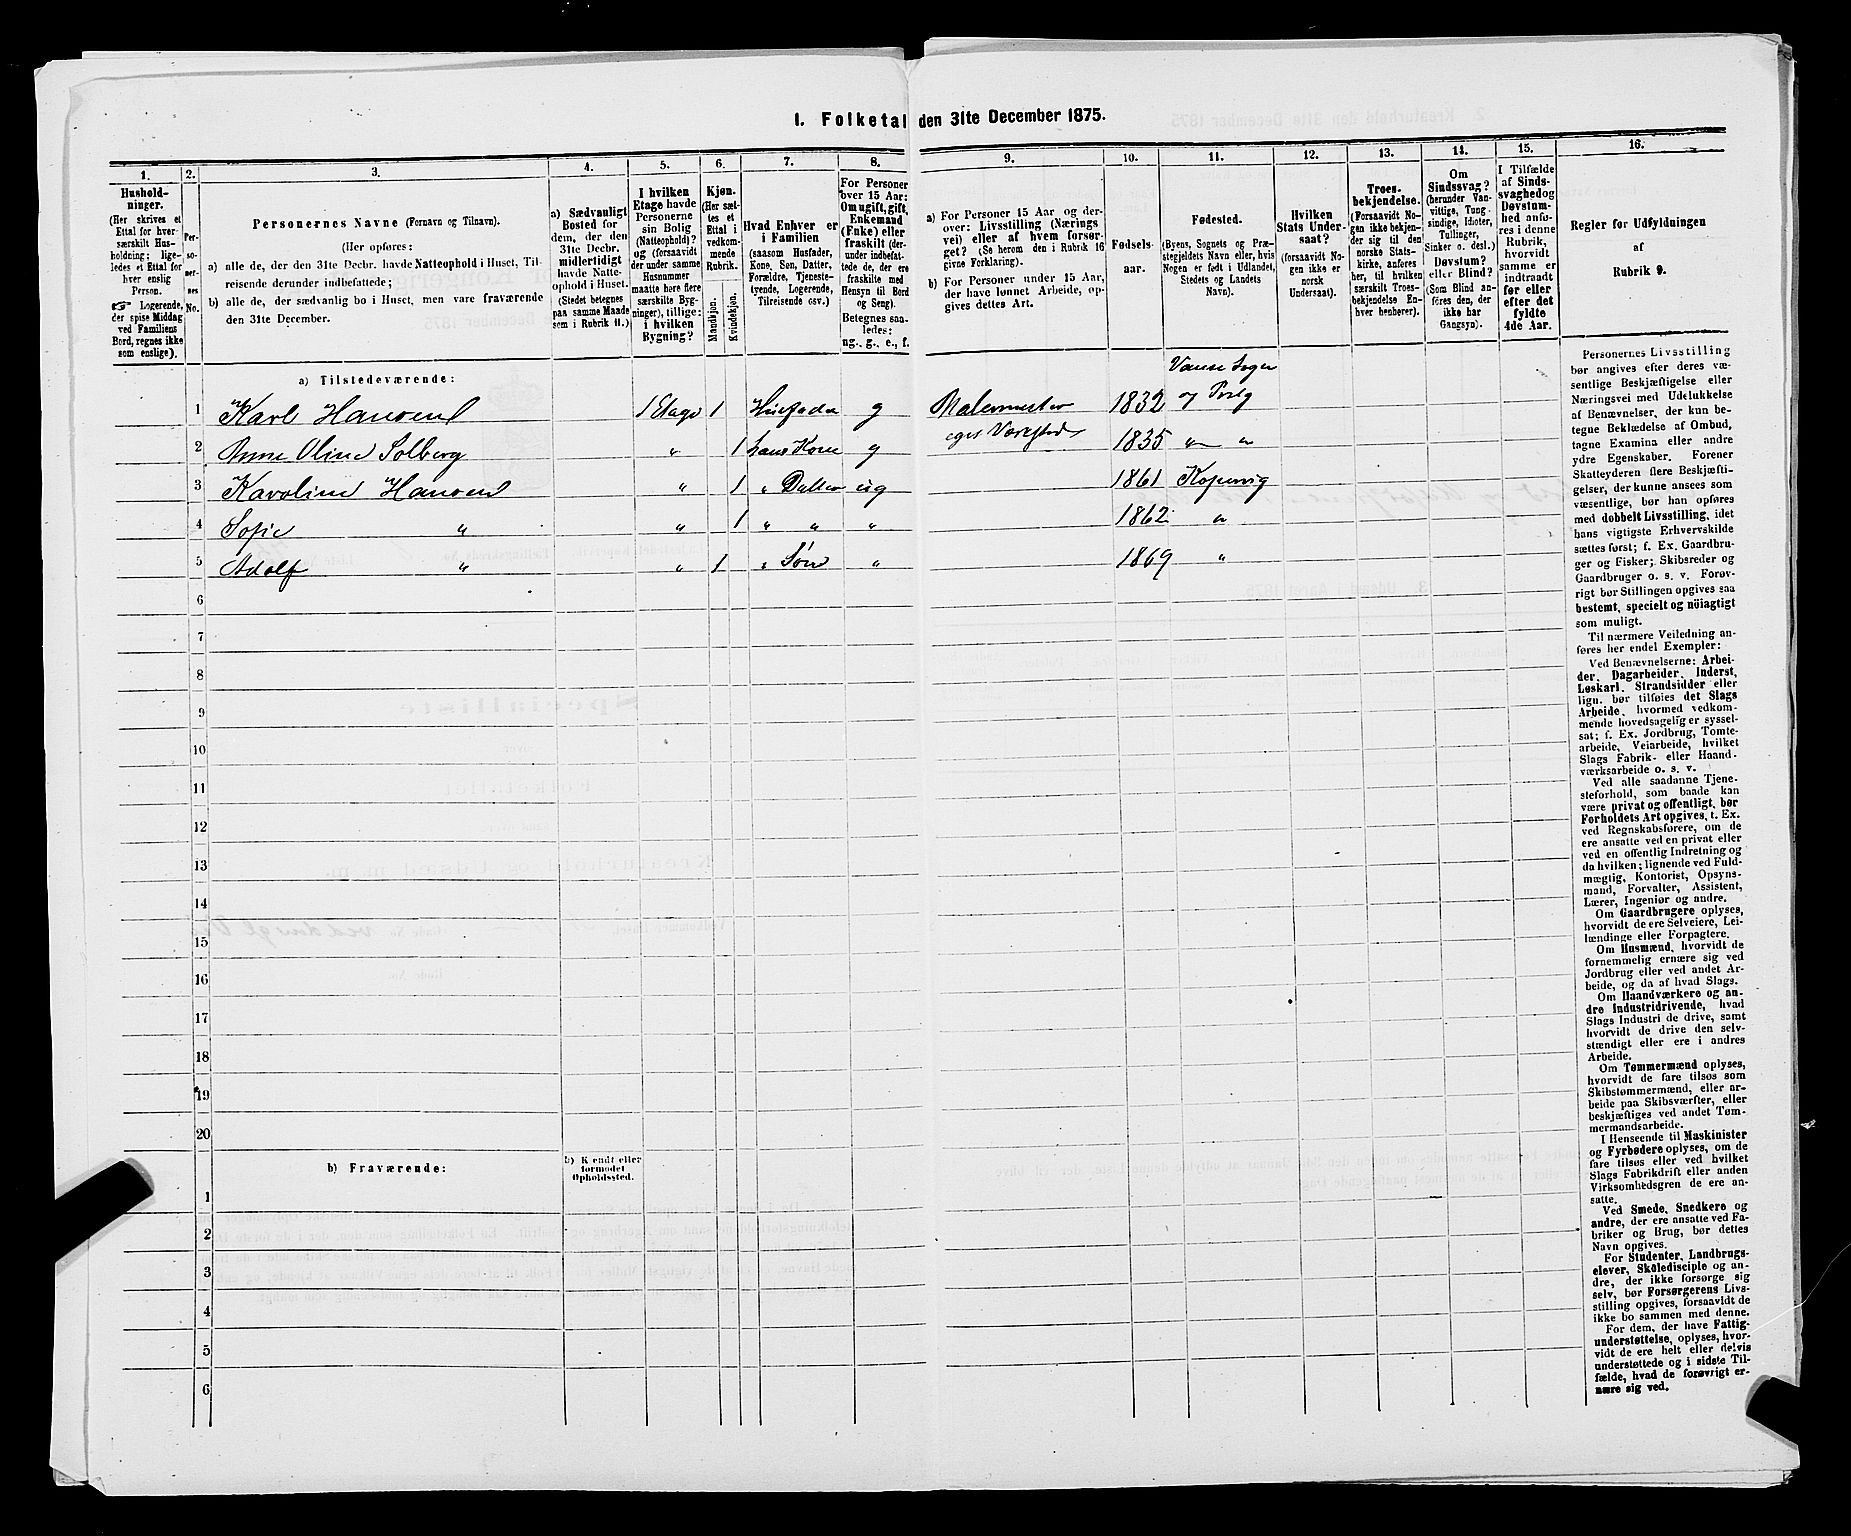 1. Folketal den 31te December 1875.
1.
Hushold-
ninger.
(Her skrives et
Ettal for hver
særskilt Hus-
holdning; lige-
ledes et Ettal for
hver enslig
Person.
☞ Logerende,
der spise Middag
ved Familiens
Bord, regnes ikke
som enslige).
2.
Per-
so-
ner-
nes
No.
3.
Personernes Navne (Fornavn og Tilnavn).
(Her opføres:
a) alle de, der den 31te Decbr. havde Natteophold i Huset, Til-
reisende derunder indbefattede;
b) alle de, der sædvanlig bo i Huset, men vare fraværende
den 31te December.
4.
a) Sædvanligt
Bosted for
dem, der den
31te Decbr.
midlertidigt
havde Natte-
ophold i Huset.
(Stedet betegnes
paa samme Maade
som i Rubrik 11.)
5.
I hvilken
Etage havde
Personerne
sin Bolig
(Natteophold)?
og (forsaavidt
der under samme
Husnummer
maatte høre flere
særskilte Byg-
ninger), tillige:
i hvilken
Bygning?
6.
Kjøn.
(Her sæt-
tes et
Ettal i
vedkom-
mende
Rubrik.
Mandkjøn.
Kvindekjøn.
7.
Hvad Enhver er
i Familien
(saasom Husfader,
Kone, Søn, Datter,
Forældre, Tjeneste-
tyende, Logerende,
Tilreisende osv.)
8.
For Personer
over 15 Aar:
Om ugift, gift,
Enkemand
(Enke) eller
fraskilt (der-
under indbefat-
tede de, der ere
fraskilte med
Hensyn til Bord
og Seng).
Betegnes saa-
ledes:
ug., g., e., f.
9.
a) For Personer 15 Aar og der-
over: Livsstilling (Nærings
vei) eller af hvem forsør-
get? (Se herom den i Rubrik 16
givne Forklaring).
b) For Personer under 15 Aar,
der have lønnet Arbeide, op-
gives dettes Art.
10.
Fødsels-
aar.
11.
Fødested.
(Byens, Sognets og Præ-
stegjeldets Navn eller, hvis
Nogen er født i Udlandet,
Stedets og Landets
Navn).
12.
Hvilken
Stats Under-
saat?
(forsaavidt No-
gen ikke er
norsk
Undersaat).
13.
Troes-
bekjendelse.
(Forsaavidt No-
gen ikke bekjen-
der sig til den
norske Stats-
kirke, anføres
her, til hvilken
særskilt Troes-
bekjendelse En-
hver henhører).
14.
Om
Sindssvag?
(herunder Van-
vittige, Tung-
sindige, Idioter,
Tullinger,
Sinker o. desl.)
Døvstum?
eller Blind?
(Som Blind an-
føres den, der
ikke har
Gangsyn).
15.
I Tilfælde
af Sinds-
svaghed og
Døvstum-
hed anfø-
res i denne
Rubrik,
hvorvidt
samme er
indtraadt
før eller
efter det
fyldte
4de Aar.
16.
Regler for Udfyldningen
af
Rubrik 9.
a) Tilstedeværende:
1 Karl Hansen 1 Etage 1 Husfader g Malermester 1832 Vanse Sogn og Prstg
2 Anne Oline Solberg " 1 hans Kone g eget Værksted 1835 " "
3 Karoline Hansen " 1 " Datter ug 1861 Kopervig
4 Sofie " " 1 " " " 1862 "
5 Adolf " " 1 " Søn " 1869 "
6
7
8
9
10
11
12
13
14
15
16
17
18
19
20
b) Fraværende:
b) Kjendt eller
formodet
Opholdssted.
1
2
3
4
5
6
Personernes Livsstilling
bør angives efter deres væ-
sentlige Beskjæftigelse eller
Næringsvei med Udelukkelse
af Benævnelser, der kun be-
tegne Beklædelse af Ombud,
tagne Examina eller andre
ydre Egenskaber. Forener
Skatteyderen flere Beskjæfti-
gelser, der kunne ansees som
væsentlige, bør han opføres
med dobbelt Livsstilling, idet
hans vigtigste Erhvervskilde
sættes først; f. Ex. Gaardbru-
ger og Fisker; Skibsreder og
Gaardbruger o. s. v. Forøv-
rigt bør Stillingen opgives saa
bestemt, specielt og nöiagtigt
som muligt.
Til nærmere Veiledning an-
føres her endel Exempler:
Ved Benævnelserne: Arbei-
der, Dagarbeider, Inderst,
Løskarl, Strandsidder eller
lign. bør tilføies det Slags
Arbeide, hvormed vedkom-
mende hovedsagelig er syssel-
sat; f. Ex. Jordbrug, Tomte-
arbeide, Veiarbeide, hvilket
Slags Fabrik- eller Haand-
værksarbeide o. s. v.
Ved alle saadanne Tjene-
steforhold, som baade kan
være privat og offentligt, bør
Forholdets Art opgives, t. Ex.
ved Regnskabsførere, om de
ere ansatte ved en privat eller
ved en offentlig Indretning og
da hvilken; lignende ved Fuld-
mægtig, Kontorist, Opsyns-
mand, Forvalter, Assistent,
Lærer, Ingeniør og andre.
Om Gaardbrugere oplyses,
hvorvidt de ere Selveiere, Lei-
lændinge eller Forpagtere.
Om Husmænd, hvorvidt de
fornemmelig ernære sig ved
Jordbrug eller ved andet Ar-
beide, og da af hvad Slags.
Om Haandværkere og an-
dre Industridrivende, hvad
Slags Industri de drive, samt
hvorvidt de drive den selv-
stændigt eller ere i andres
Arbeide.
Om Tømmermænd oplyses,
hvorvidt de fare tilsøs som
Skibstømmermænd, eller ar-
beide paa Skibsværfter, eller
beskjæftiges ved andet Tøm-
mermandsarbeide.
I Henseende til Maskinister
og Fyrbødere oplyses, om de
fare tilsøs eller ved hvilket
Slags Fabrikdrift eller anden
Virksomhedsgren de ere an-
satte.
Ved Smede, Snedkere og
andre, der ere ansatte ved Fa-
briker og Brug, bør dettes
Navn opgives.
For Studenter, Landbrugs-
elever, Skoledisciple og an-
dre, der ikke forsørge sig
selv, bør Forsørgerens Livs-
stilling opgives, forsaavidt de
ikke bo sammen med denne.
For dem, der have Fattig-
understøttelse, oplyses, hvor-
vidt de ere helt eller delvis
understøttede og i sidste Til-
fælde, hvad de forøvrigt er-
nære sig ved.